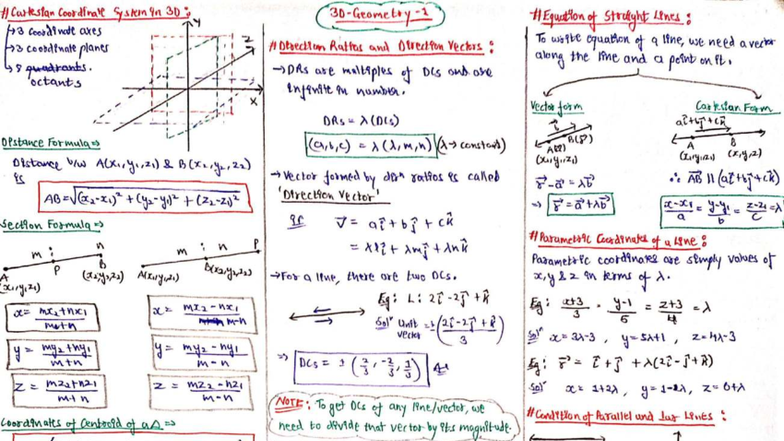 3D-Geometry-1
# Cartesian Coordinate System in 3D:
→ 3 coordinate axes
→ 3 coordinate planes
→ 8 quadrants.
octants
Y
Z
X
Distance Formula ⇒
Distance b/w A(x₁,y₁,z₁) & B(x₂,y₂,z₂)
is
AB = √(x₂-x₁)² + (y₂-y₁)² + (z₂-z₁)²
Section Formula ⇒
m : n
A P B
(x₁,y₁,z₁) (x₂,y₂,z₂)
m : n P
A(x₁,y₁,z₁) B(x₂,y₂,z₂)
x = mx₂+nx₁ / m+n
x = mx₂-nx₁ / m-n
y = my₂+ny₁ / m+n
y = my₂-ny₁ / m-n
z = mz₂+nz₁ / m+n
z = mz₂-nz₁ / m-n
Coordinates of Centroid of a Δ ⇒
# Direction Ratios and Direction Vectors:
→ DRs are multiples of DCs and are
infinite in number.
DRs = λ(DCs)
(a,b,c) = λ(l,m,n) (λ → constant)
→ Vector formed by dirⁿ ratios is called
'Direction Vector'
V⃗ = ai⃗ + bj⃗ + ck⃗
= λli⃗ + λmj⃗ + λnk⃗
→ For a line, there are two DCs.
Eg: L: 2i⃗ - 2j⃗ + k⃗
Solⁿ Unit vector = ± (2i⃗ - 2j⃗ + k⃗ / 3)
⇒ DCs = ± (2/3, -2/3, 1/3)
NOTE: To get DCs of any line/vector, we
need to divide that vector by its magnitude.
# Equation of Straight Lines:
To write equation of a line, we need a vector
along the line and a point on it.
Vector form
b⃗
A(a⃗) B(r⃗)
(x₁,y₁,z₁)
r⃗ - a⃗ = λb⃗
⇒ r⃗ = a⃗ + λb⃗
Cartesian Form
ai⃗ + bj⃗ + ck⃗
A B
(x₁,y₁,z₁) (x,y,z)
∴ AB⃗ || (ai⃗ + bj⃗ + ck⃗)
x-x₁/a = y-y₁/b = z-z₁/c = λ
# Parametric Coordinates of a Line:
Parametric coordinates are simply values of
x, y & z in terms of λ.
Eg: x+3/3 = y-1/5 = z+3/4 = λ
Solⁿ x = 3λ-3, y = 5λ+1, z = 4λ-3
Eg: r⃗ = i⃗ + j⃗ + λ(2i⃗ - j⃗ + k⃗)
Solⁿ x = 1+2λ, y = 1-2λ, z = 0+λ
# Condition of Parallel and ⊥ar Lines: